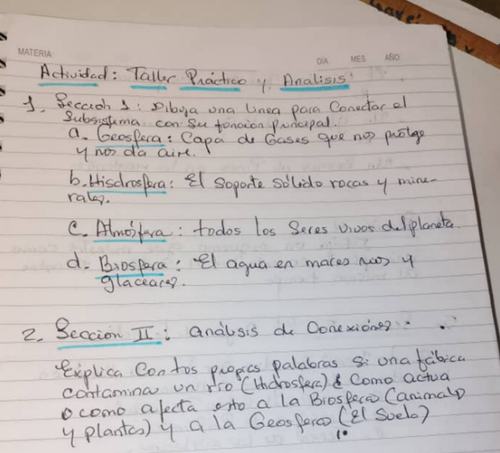 MATERIA:
DIA MES AÑO
Actividad: Taller Práctico y Analisis:
1. Sección 1: Dibuja una linea para Conectar el
Subsistema con su función principal.
a. Geosfera: Capa de Gases que nos protge
y nos da aire.
b. Hisdrosfera: El soporte sólido rocas y mine-
rales.
c. Atmósfera: todos los Seres vivos del planeta.
d. Biosfera: El agua en mares rios y
glaceares.
2. Sección II: análisis de Conexiónes.
Explica con tus propias palabras si una fábica
contamina un río (Hidrosfera) ¿ Como actua
o como afecta esto a la Biosfera (animal
y plantas) y a la Geosfera (El Suelo)